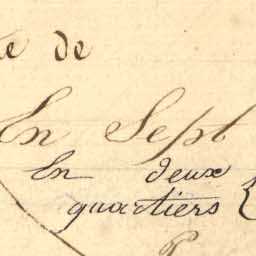 de
En Sept
En deux
quartiers